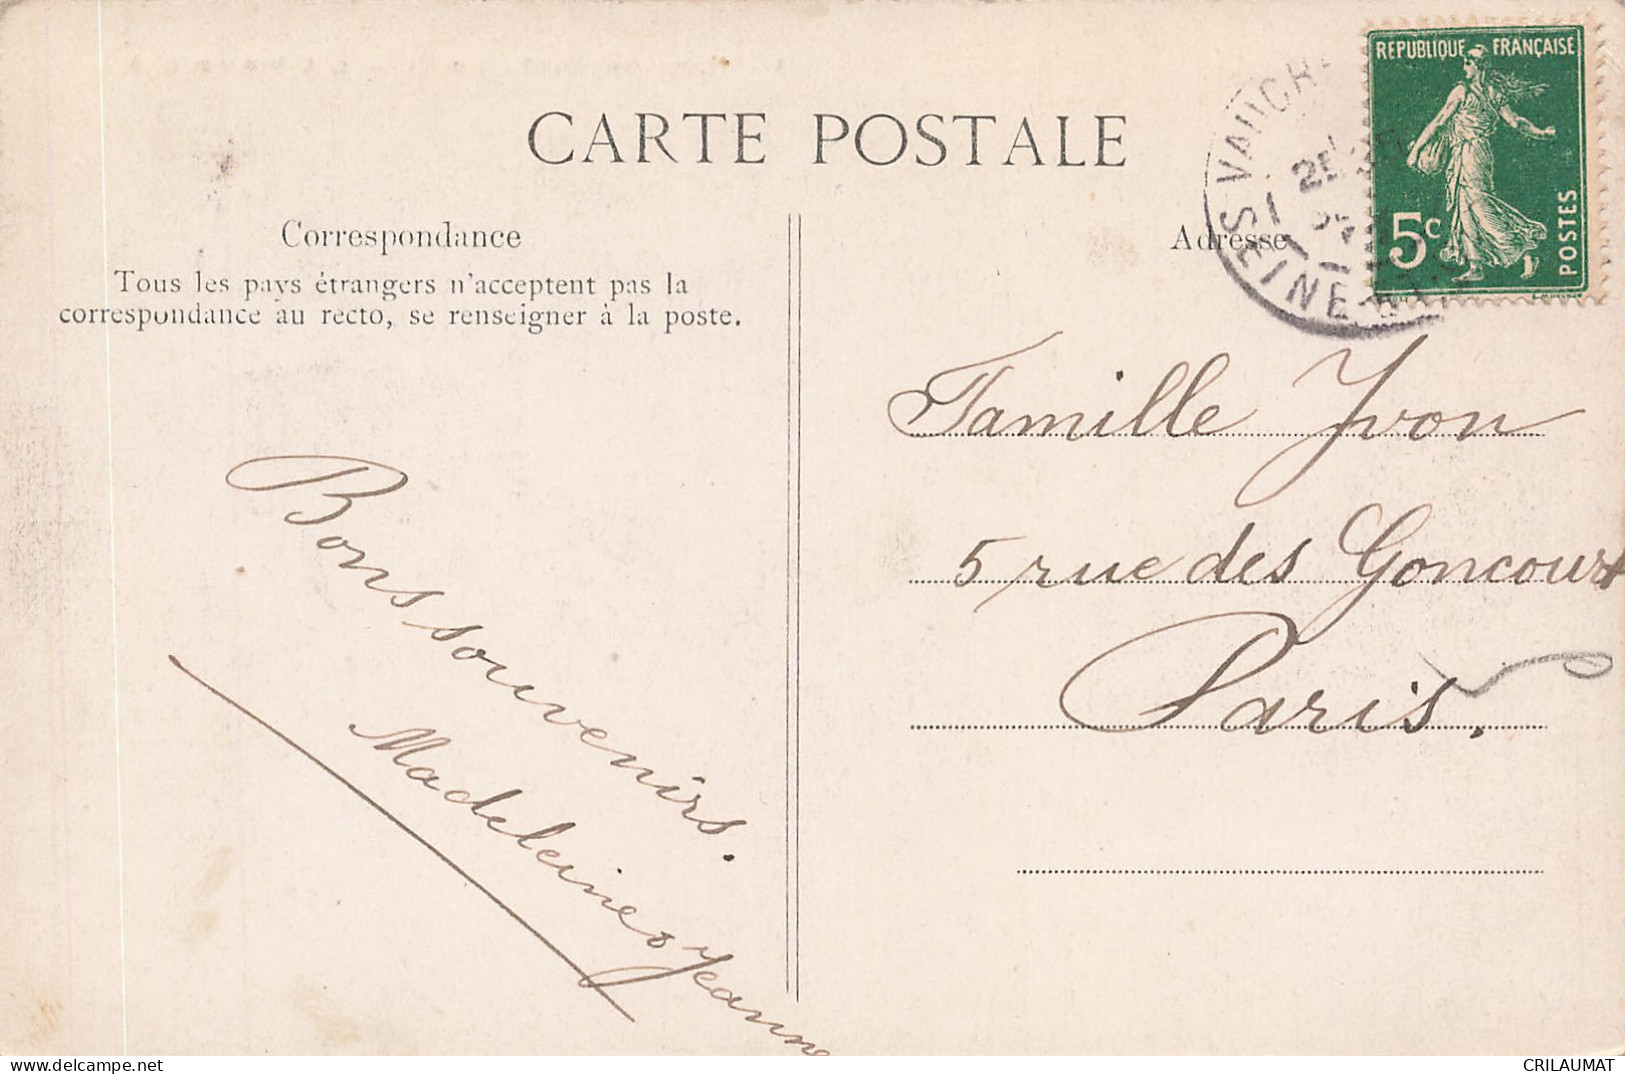 CARTE POSTALE
REPUBLIQUE FRANÇAISE
5c
POSTES
SEINE
Correspondance
Tous les pays étrangers n'acceptent pas la
correspondance au recto, se renseigner à la poste.
Adresse
Bons souvenirs.
Madeleine & Jeanne
Famille Yvon
5 rue des Goncourt
Paris.
CRILAUMAT